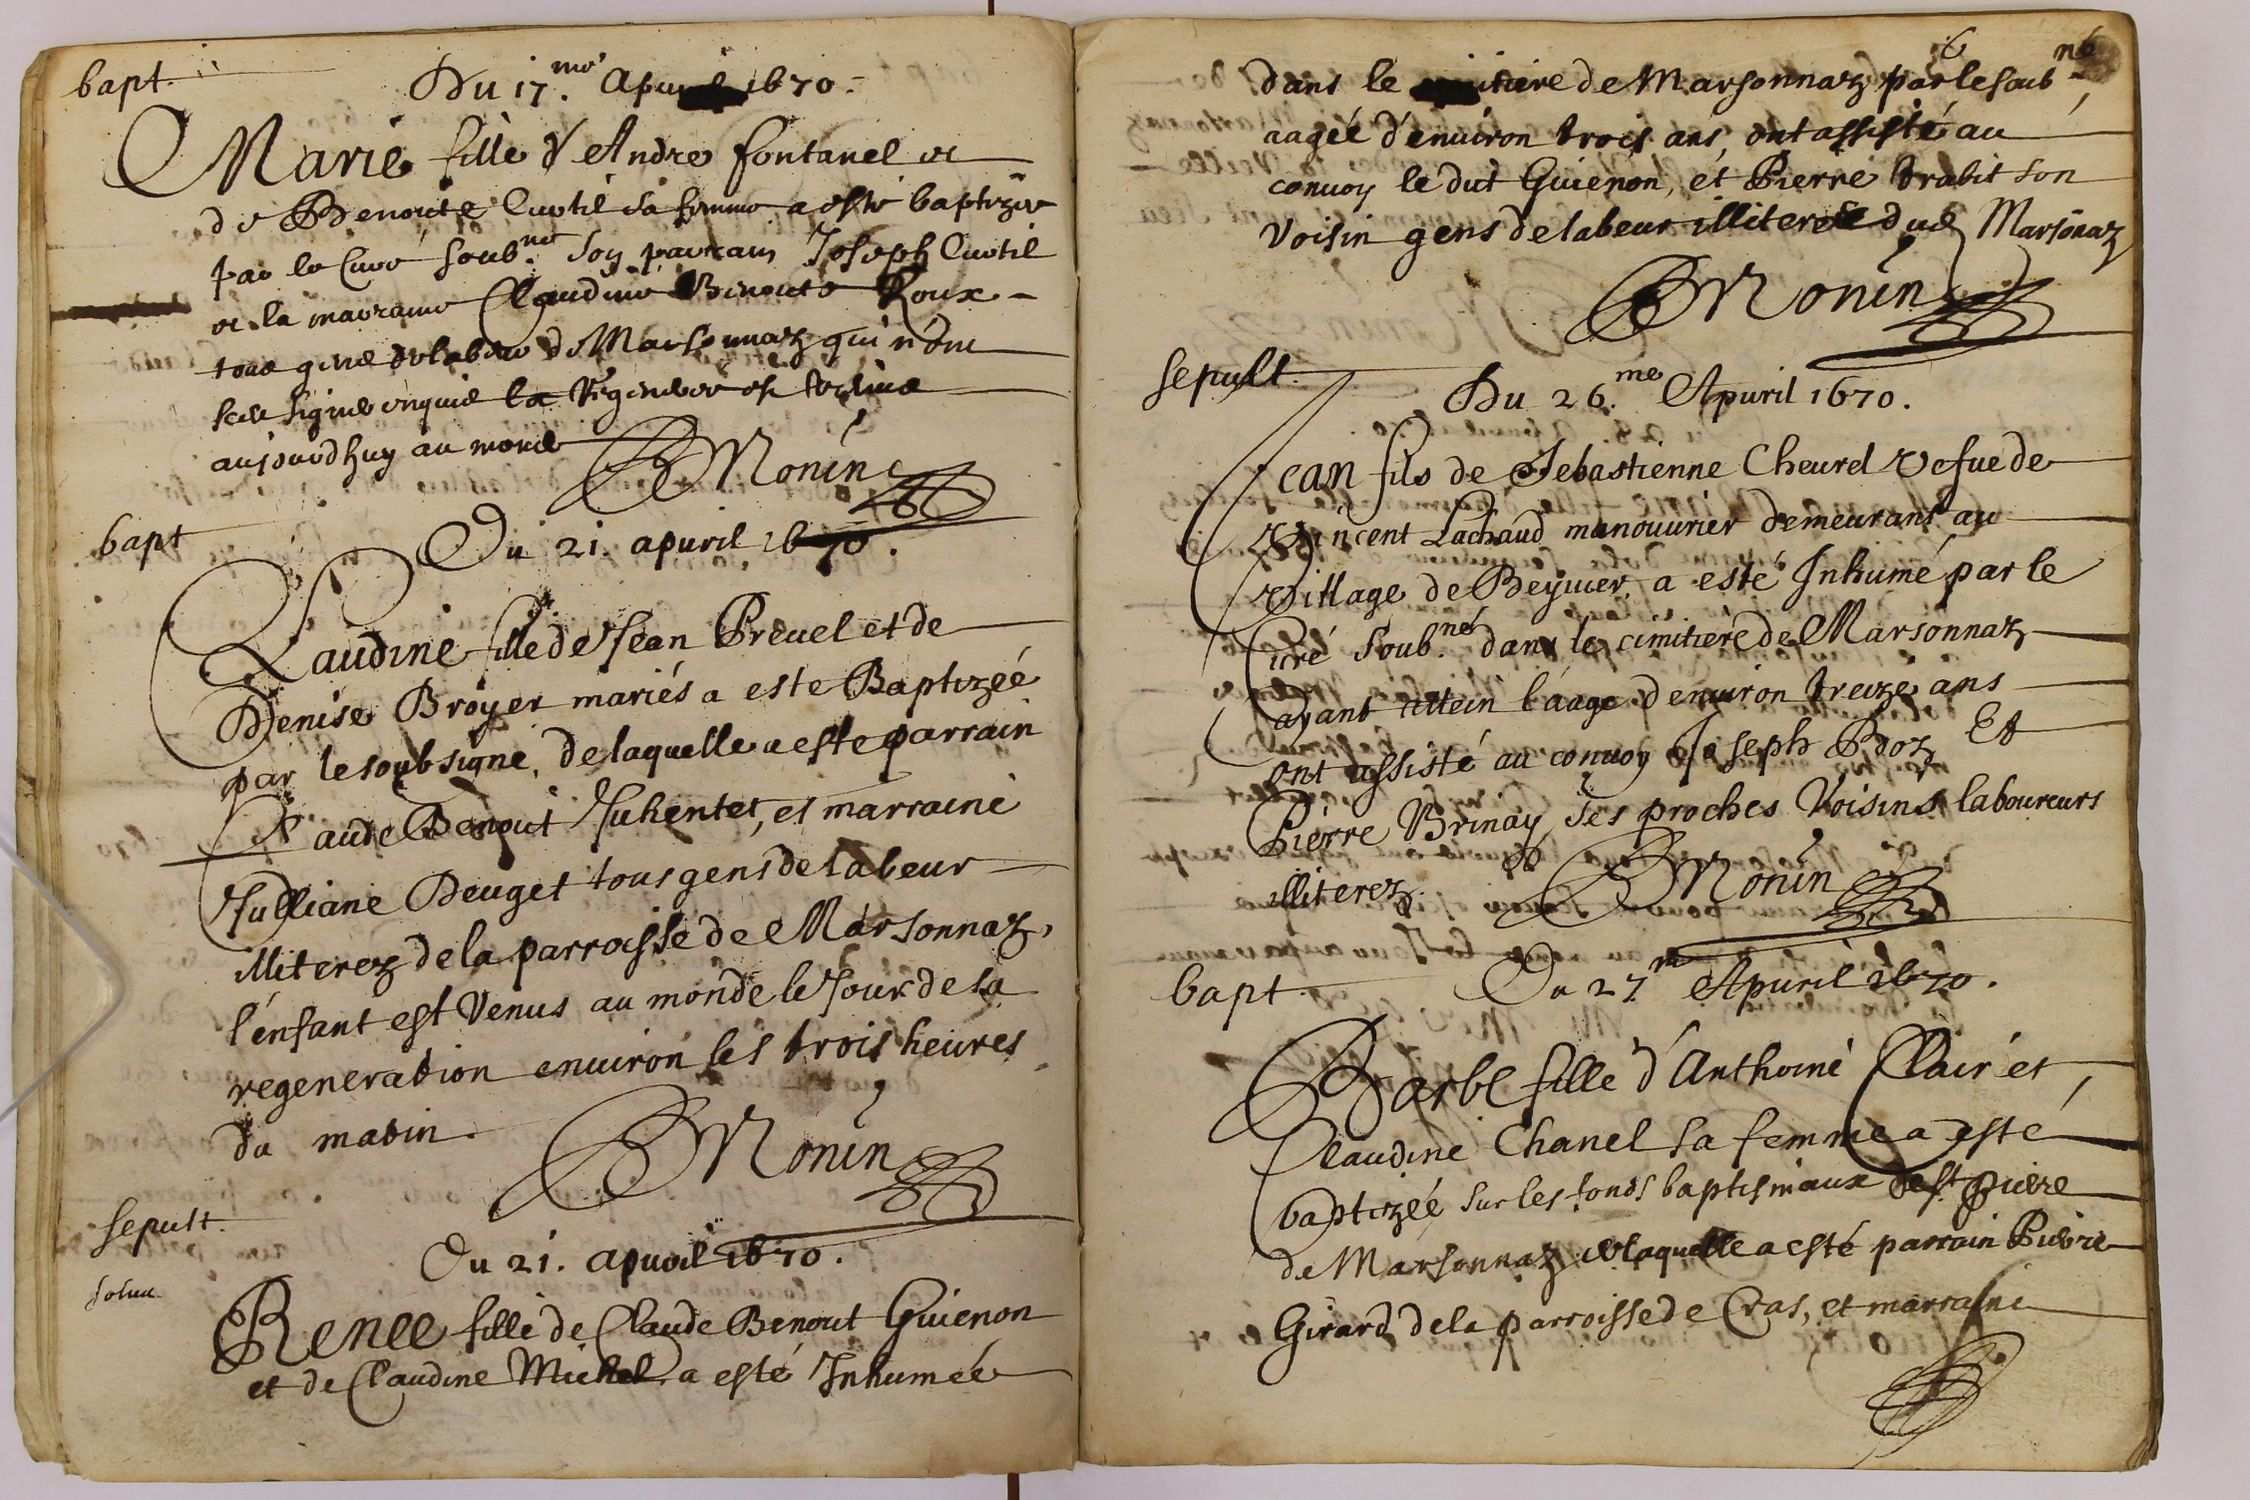 bapt.
Du 17.me Apuril 1670.
Marie fille d'Andre fontanel et
de Benoite Cuotil sa femme a esté baptizée
par le Curé soub.né son parrain Joseph Cuotil
et la marraine Claudine Benoite Roux
tous gens de labeur de Marsonnaz qui n'ont
sceu signer enquis la regeneree est venue
aujourdhuy au monde
BMonin
bapt
Du 21. apuril 1670.
Claudine fille de Jean Preuel et de
Denise Broyer mariés a este Baptizeé
par le soubsigne, de laquelle a este parrain
Claude Benoit Juhentet, et marraine
Julliane Beuget tous gens de labeur
illiterez de la parroisse de Marsonnaz,
l'énfant est Venus au monde le Jour de la
regeneration enuiron les trois heures
du matin.
BMonin
Sepult.
solut.
Du 21. apuril 1670.
Renee fille de Claude Benoit Guienon
et de Claudine Michel a esté Inhumeé
6
dans le cimitiere de Marsonnaz par le soub.né
aageé d'enuiron trois ans, ont assisté au
conuoy le dit Guienon, et Pierre trabit son
Voisin gens de labeur illiterés dud Marsonaz
BMonin
Sepult.
Du 26.me Apuril 1670.
Jean fils de Sebastienne Cheurel Vefue de
Vincent Lachaud manouurier demeurant au
Village de Beyuier a esté Inhumé par le
Curé Soub.né dans le cimitiere de Marsonnaz
ayant attein l'aage d'enuiron treize ans
ont assisté au conuoy Joseph Broz Et
Pierre Brinay ses proches Voisins laboureurs
illiterez.
BMonin
bapt
Du 27.m Apuril 1670.
Barbe fille d'Anthoine Clair et
Claudine Chanel sa femme a esté
baptizeé sur les fonds baptismaux de st pierre
de Marsonnaz de laquelle a esté parrain Pierre
Girard de la parroisse de Cras, et marraine